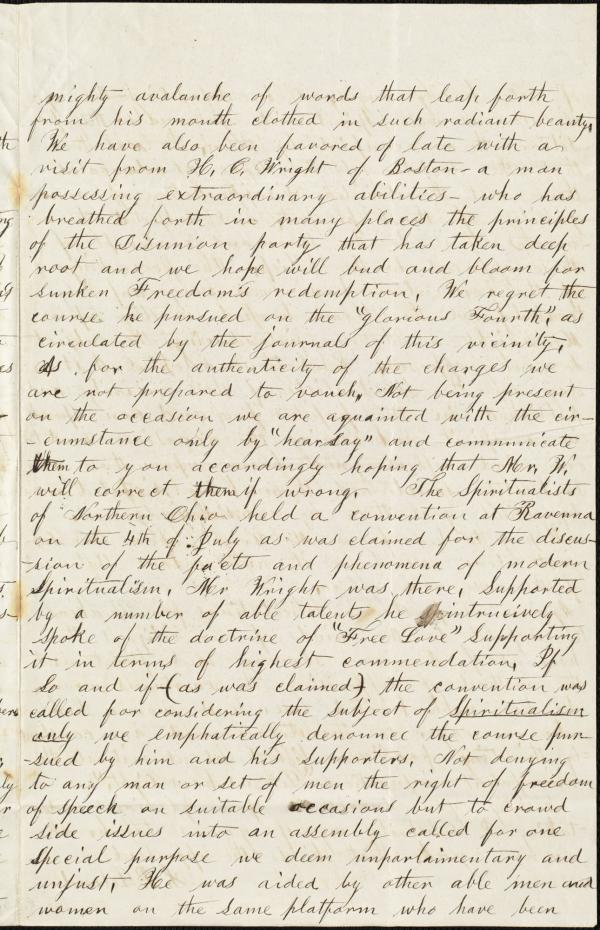 mighty avalanche of words that leap forth
from his mouth clothed in such radiant beauty.
We have also been favored of late with a
visit from H. C. Wright of Boston - a man
possessing extraordinary abilities - who has
breathed forth in many places the principles
of the Disunion party that has taken deep
root and we hope will bud and bloom for
sunken Freedom's redemption. We regret the
course he pursued on the "glorious Fourth", as
circulated by the journals of this vicinity.
As for the authenticity of the charges we
are not prepared to vouch. Not being present
on the occasion we are aquainted with the cir-
-cumstance only by "hearsay" and communicate
them to you accordingly hoping that Mr. W.
will correct them if wrong. The Spiritualists
of Northern Ohio held a convention at Ravenna
on the 4th of July as was claimed for the discus-
-sion of the facts and phenomena of modern
Spiritualism. Mr Wright was there, Supported
by a number of able talents he intrucively
spoke of the doctrine of "Free Love" Supporting
it in terms of highest commendation. If
So and if (as was claimed) the convention was
called for considering the subject of Spiritualism
only we emphatically denounce the course pur-
-sued by him and his Supporters. Not denying
to any man or set of men the right of freedom
of speech on suitable occasions but to crowd
side issues into an assembly called for one
Special purpose we deem unparlaimentary and
unjust. He was aided by other able men and
women on the same platform who have been